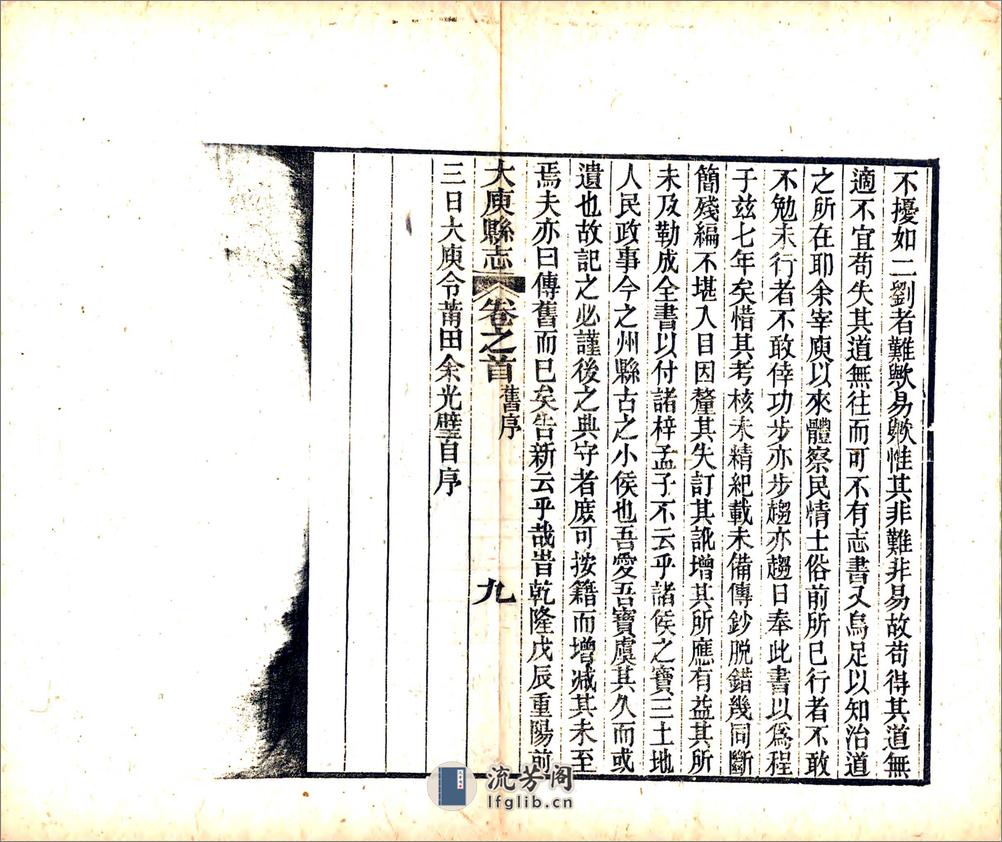 不擾如二劉者難歟易歟惟其非難非易故苟得其道無
適不宜苟失其道無往而可不有志書又烏足以知治道
之所在耶余宰庾以來體察民情土俗前所已行者不敢
不勉未行者不敢倖功步亦步趨亦趨日奉此書以爲程
于玆七年矣惜其考核未精紀載未備傳鈔脱錯幾同斷
簡殘編不堪入目因釐其失訂其訛增其所應有益其所
未及勒成全書以付諸梓孟子不云乎諸侯之寶三土地
人民政事今之州縣古之小侯也吾愛吾寶虞其久而或
遺也故記之必謹後之典守者庶可按籍而增减其未至
焉夫亦曰傳舊而已矣告新云乎哉旹乾隆戊辰重陽前
大庾縣志 卷之首 舊序 九
三日大庾令莆田余光璧自序
流芳阁
lfglib.cn